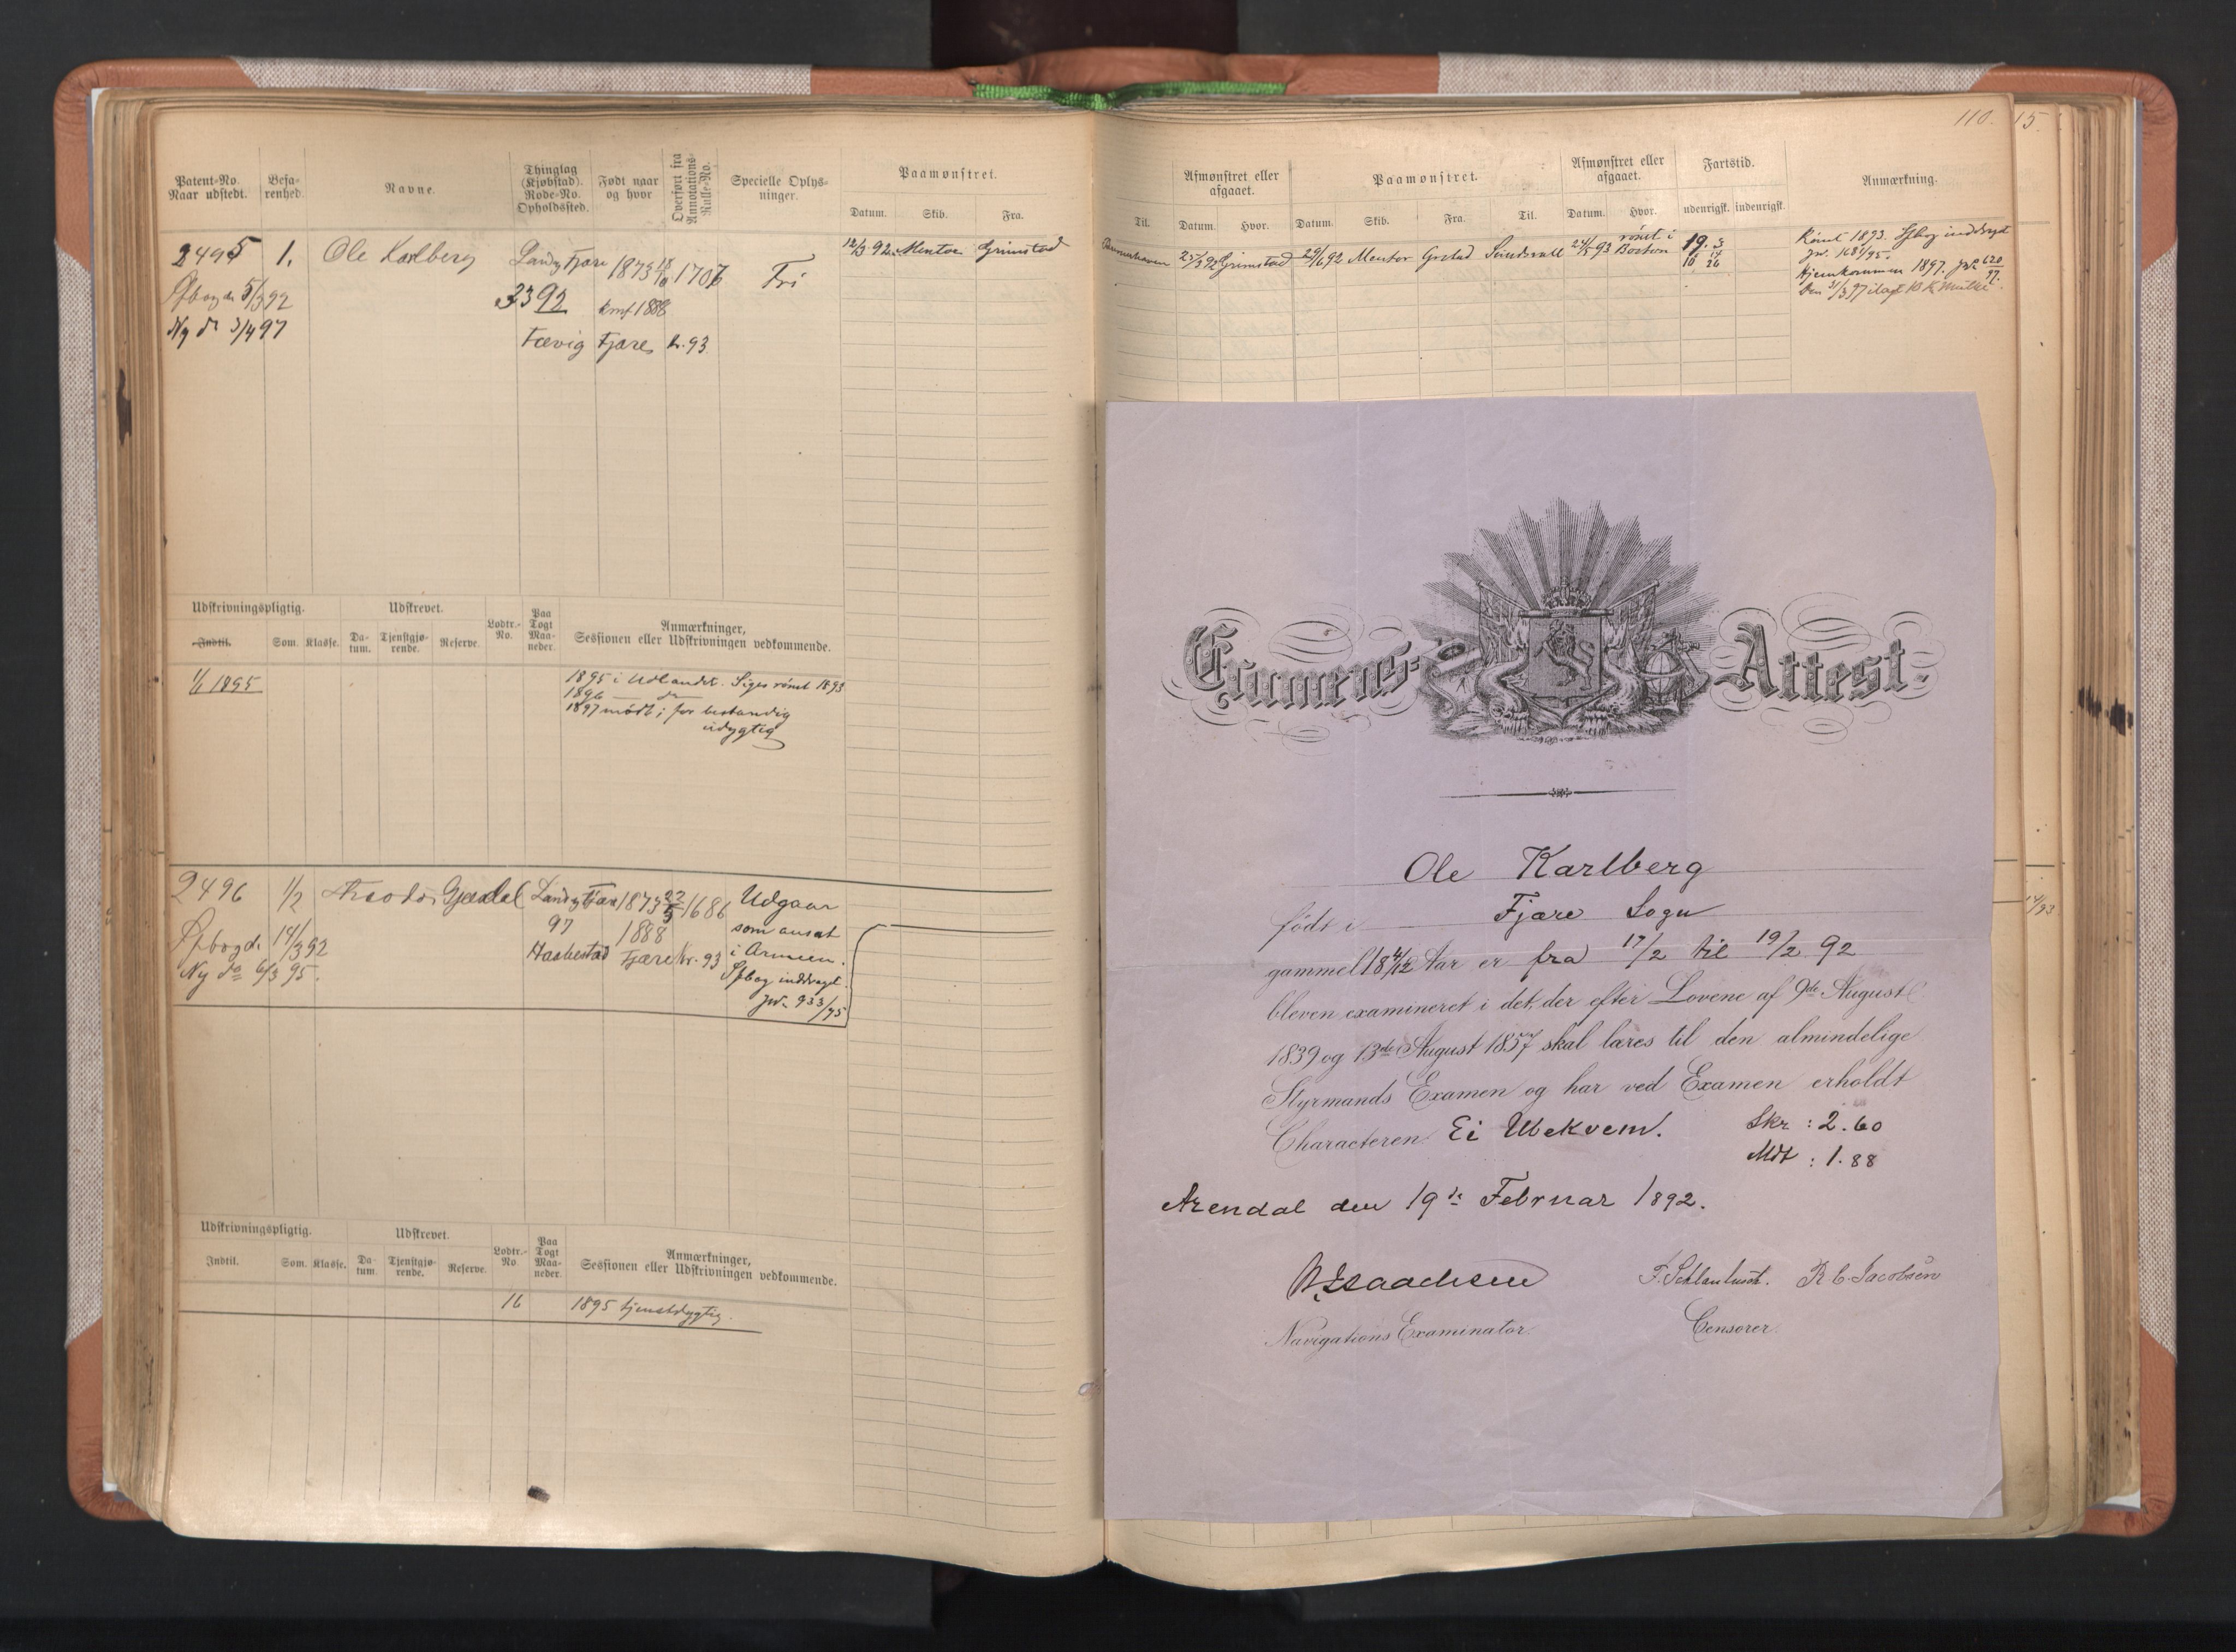 110.
15.
Patent-No. Naar udstedt.
Befarenhed.
Navne.
Thinglag (Kjøbstad). Rode-No. Opholdssted.
Født naar og hvor
Overført fra Annotations-Rulle-No.
Specielle Oplysninger.
Paamønstret.
Datum. Skib. Fra.
Til.
Afmønstret eller afgaaet.
Datum. Hvor.
Paamønstret.
Datum. Skib. Fra. Til.
Afmønstret eller afgaaet.
Datum. Hvor.
Fartstid.
udenrigsk. indenrigsk.
Anmærkning.
2495 1. Ole Karlberg Landv Fjære 1873 18/10 1707 Fri
12/3 92 Mentor Grimstad
25/5 92 Grimstad 29/6 92 Mentor Grstad Sundsvall 24/5 93 rømt i Boston
Rømt 1893. Sfbog inddraget
Hjemkommen 1897.
5/3 92
3392 kmf 1888
Ny do 3/4 97
Fævig Fjære k. 93
Udskrivningspligtig.
Udskrevet.
Lodtr.-No.
Paa Togt Maaneder.
Anmærkninger, Sessionen eller Udskrivningen vedkommende.
Indtil. Som. Klasse. Datum. Tjenstgjørende. Reserve.
1/1 1895
1895 i Udlandet. Siges rømt 1893
1896 — do —
1897 mødt; for bestandig
udygtig
2496 1/2 Theodor Gjerdal Landv Fjære 1873 22/5 1686 Udgaar
97 1888 som ansat
14/3 92
Haabestad Fjære kr. 93 i Armeen.
Ny do 6/3 95.
Sfbog inddraget.
jwr 933/95
14/93
Udskrivningspligtig.
Udskrevet.
Lodtr.-No
Paa Togt Maaneder.
Anmærkninger, Sessionen eller Udskrivningen vedkommende.
Indtil. Som. Klasse. Datum. Tjenstgjørende. Reserve.
16 1895 tjenstdygtig.
Examens-Attest.
Ole Karlberg
født i Fjære Sogn
gammel 18 4/12 Aar er fra 17/2 til 19/2 92
bleven examineret i det, der efter Lovene af 9de August
1839 og 13de August 1857 skal læres til den almindelige
Styrmands Examen og har ved Examen erholdt
Characteren Ei Ubekvem. Skr : 2.60
Mdt : 1.88
Arendal den 19de Februar 1892.
N. Isaachsen R C. Jacobsen
Navigations Examinator. Censorer.